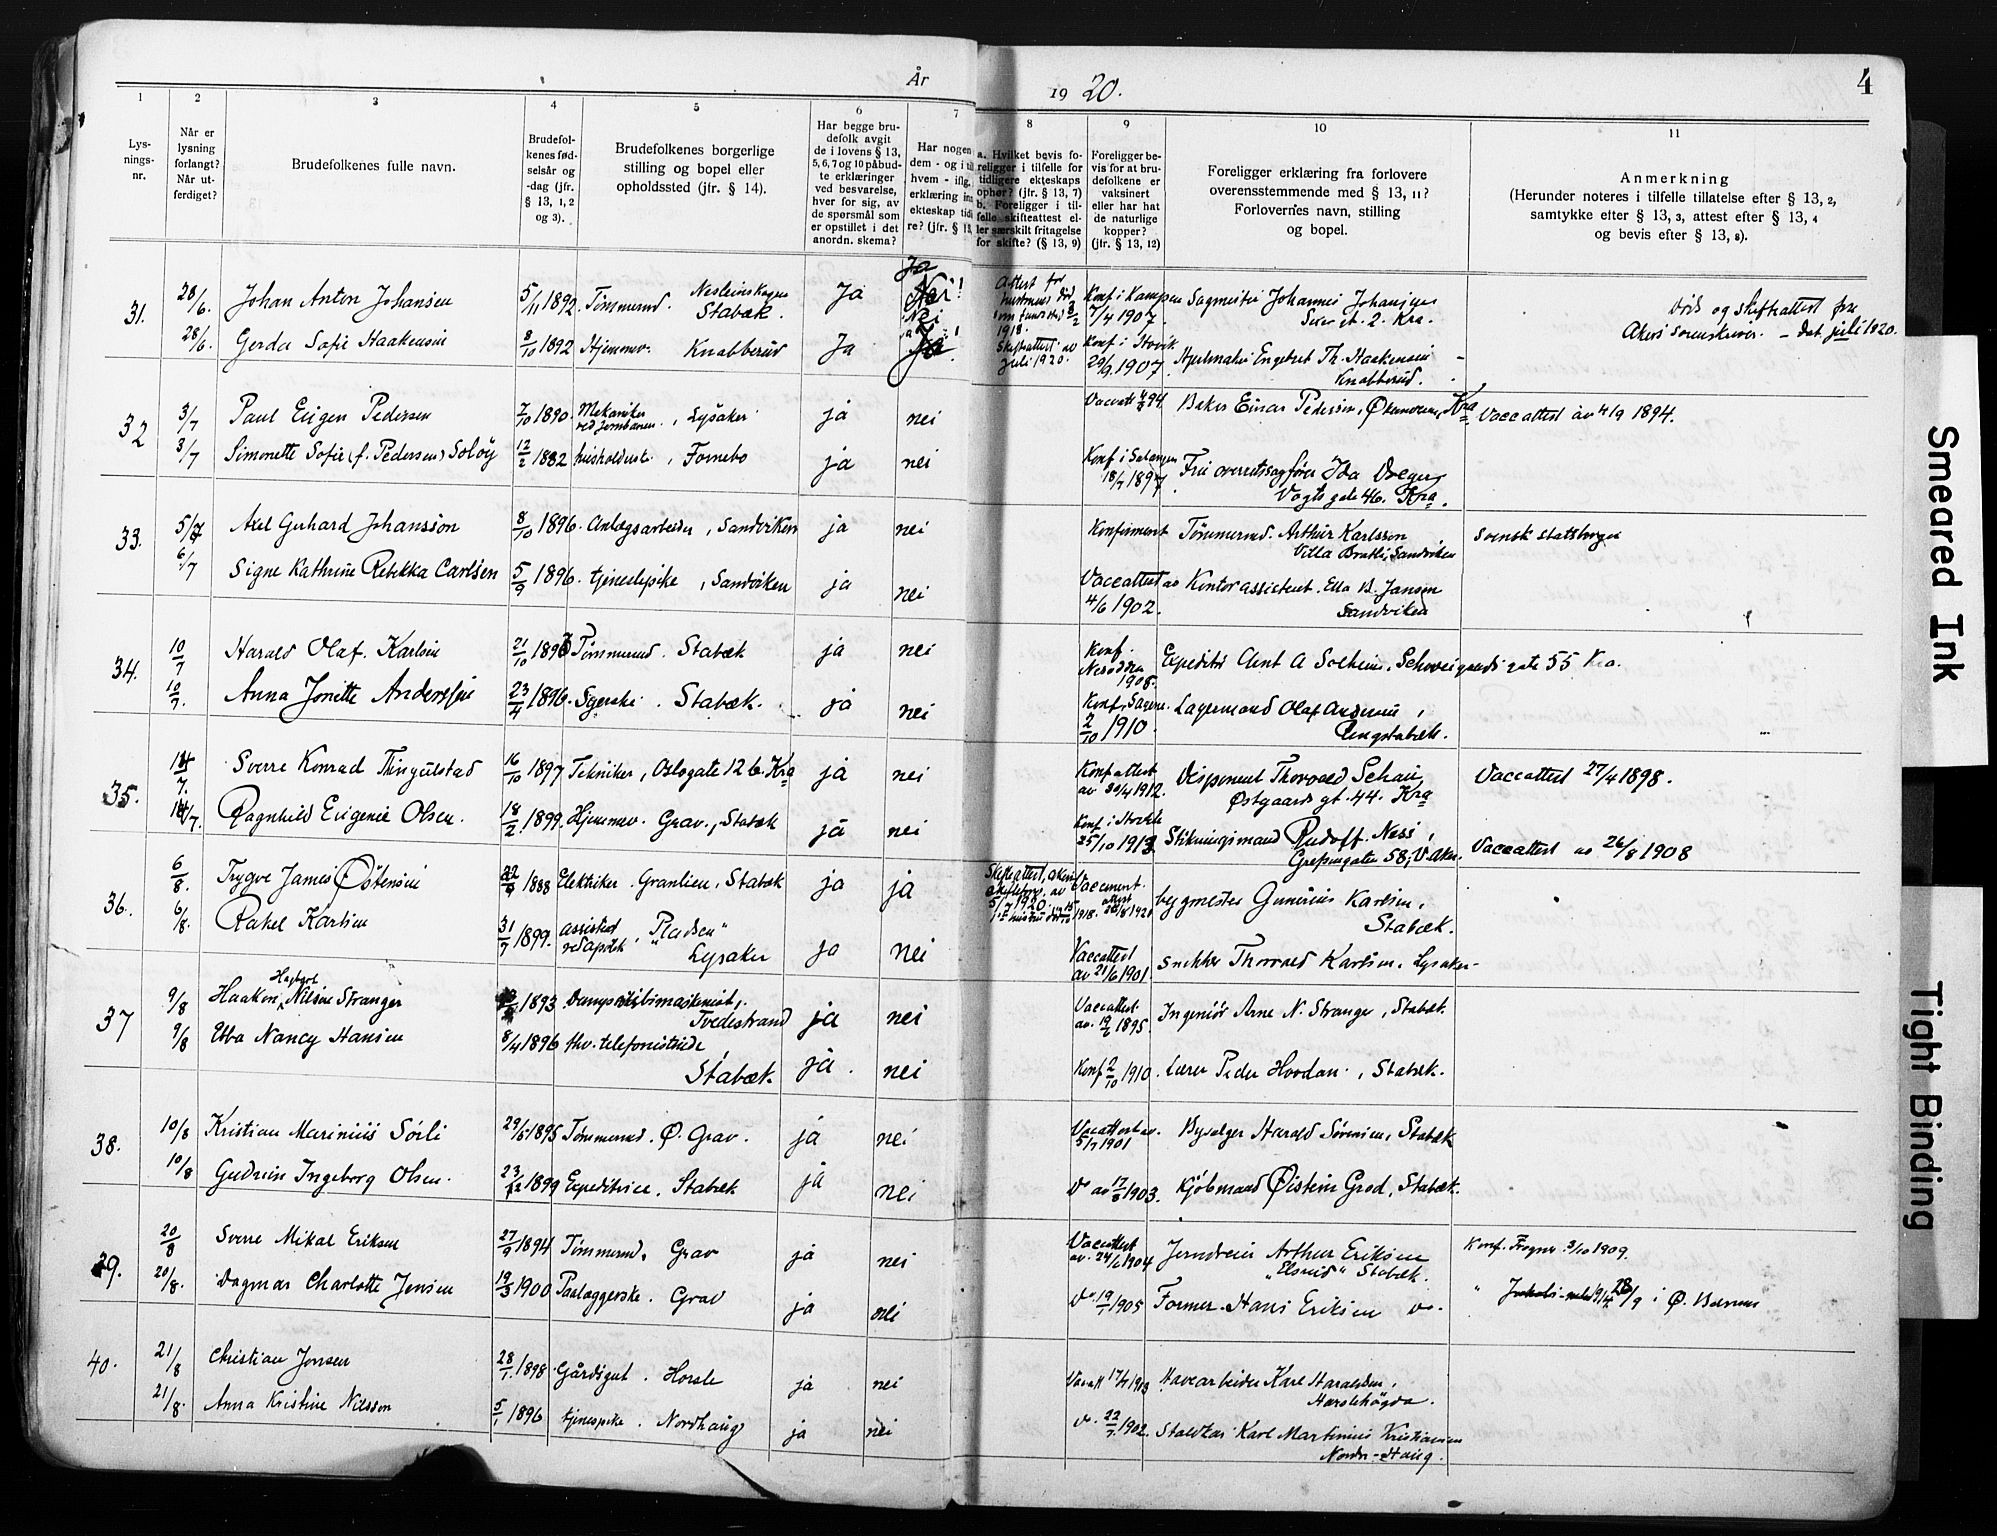 År 1920.
4
1 2 3 4 5 6 7 8 9 10 11
Lysningsnr.
Når er lysning forlangt? Når utferdiget?
Brudefolkenes fulle navn.
Brudefolkenes fødselsår og -dag (jfr. § 13, 1, 2 og 3).
Brudefolkenes borgerlige stilling og bopel eller opholdssted (jfr. § 14).
Har begge brudefolk avgit de i lovens § 13, 5, 6, 7 og 10 påbudte erklæringer ved besvarelse, hver for sig, av de spørsmål som er opstillet i det anordn. skema?
Har nogen dem - og i til hvem - iflg. erklæring in ekteskap tidi re? (jfr. § 13,
a. Hvilket bevis foreligger i tilfelle for tidligere ekteskaps ophør? (jfr. § 13, 7) b. Foreligger i tilfelle skifteattest eller særskilt fritagelse for skifte? (§ 13, 9)
Foreligger bevis for at brudefolkene er vaksinert eller har hat de naturlige kopper? (jfr. § 13, 12)
Foreligger erklæring fra forlovere overensstemmende med § 13, 11? Forlovernes navn, stilling og bopel.
Anmerkning (Herunder noteres i tilfelle tillatelse efter § 13, 2, samtykke efter § 13, 3, attest efter § 13, 4 og bevis efter § 13, 8).
31. 28/6. Johan Anton Johansen 5/11 1892. Tømmermd. Stabæk. Ja Konf i Kampen 7/4 1907. Johannes Kra.
28/6. Gerda Sofie Haakensen 8/10 1892 Hjemmev. Knabberud Ja Ja Konf i 29/9 1907. Engebret Th. Haakensen Knabberud.
Akers Sorenskriver. - dat. juli 1920.
Skifteattest av Juli 1920.
32 3/7 Paul Eugen Pedersen 7/10 1890. Mekaniker ved Jernbanen, Lysaker ja nei Baker Einar Pedersen, Kra Vaccattest av 4/9 1894.
3/7 Simonette Sofie (f. Pedersen) Soløy 12/2 1882 husholderske, Fornebo ja nei Konf i Salangen 18/7 1897. Fru overretssagfører Ida Vogts gate 46. Kra.
33. 5/7 Axel Gerhard Johansson 8/10 1896. Anlægsarbeider, Sandviken ja nei Konfirmert Tømmermd. Arthur Karlsson, Villa Bratli, Sandviken Svensk statsborger
6/7 Signe Kathrine Rebekka Carlsen 5/9 1896. tjenestepike, Sandviken ja nei Vaccattest av 4/6 1902. Kontorassistent. Ella B. Jansen Sandviken
34. 10/7 Harald Olaf. Karlsen 21/10 1893 Tømmermd. Stabæk ja nei Konf. Nesodden 1908. Expeditør A Solheim, Schweigaards gate 55 Kra.
10/7. Anna Jonette Andersen 23/4 1896. Syerske. Stabæk. ja nei Konf. Sagene. 2/10 1910. Lagermand Olaf Andersen, Ringstabæk.
35. 14/7. Sverre Konrad Thingulstad 16/10 1897 Tekniker, Oslogate 12 b. Kra ja nei Konfattest av 20/4 1912. Disponent Thorvald Schau, Østgaards gt. 44. Kra Vaccattest 27/4 1898.
14/7. Ragnhild Eugenie Olsen. 18/2. 1899. Hjemmev. Grav., Stabæk ja nei 25/10 1913 Stikningsmand Rudolf Ness, 58, V. Aker. Vaccattest av 26/8 1908
36. 6/8. Trygve James Østensen 1888 Elektriker. Granlien, Stabæk ja ja bygmester Gunerius Karlsen, Stabæk.
6/8. Rakel Karlsen 31/7 1899. assistent ved apotek, "Pladsen" Lysaker ja nei Vaccattest av 21/6 1901. snekker Thorvald Karlsen. Lysaker
37 9/8 Haakon Nilsen Stranger 1893 Dampskibsmaskinist, Tvedestrand ja nei Vaccattest. av. 1895. Ingeniør Arne N. Stranger, Stabæk.
9/8 Ebba Nancy Hansen 8/4 1896 fhv. telefonistinde, Stabæk ja. nei Konf 2/10 1910. Lærer Peder Hovdan., Stabæk.
38. 10/8 Kristian Marinius Sørli 29/5 1895 Tømmermd. Ø. Grav. ja nei Vaccattest av. 5/7 1901 Harald Sørensen, Stabæk
10/8 Gudrun Ingeborg Olsen. 23/12 1899 Expeditrice. Stabæk ja nei Do av 17/8 1903. Kjøbmand Øistein Grod, Stabæk.
39. 20/8 Sverre Mikal Eriksen 27/9 1894 Tømmermd. Grav ja nei Vaccattest av. 24/6 1904 Arthur Eriksen Stabæk. Konf. Frogner 3/10 1909.
20/8. Dagmar Charlotte Jensen 19/3 1900 Paalæggerske. Grav ja nei Do 19/7 1905 Former. Hans Eriksen do. " 28/9 i Ø. Bærum
40. 21/8 Christian Jensen 28/1. 1898. Gårdsgut. Horsle ja nei 17/7 1903 Havearbeider Karl Haraldsen,
21/8. Anna Kristine Nilsson 5/1 1896 tjenepike. Nordhaug ja nei Do. 22/7. 1902. Staldkar Karl Martinius Kristiansen Nordre-Haug.
Smeared Ink
Tight Binding